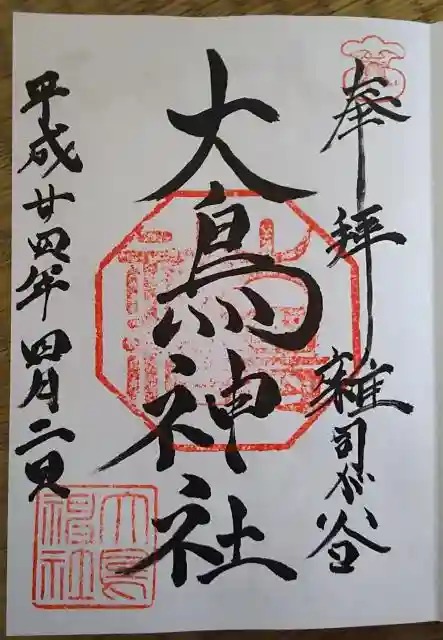 奉拝
雑司が谷
大鳥神社
平成廿四年四月二日